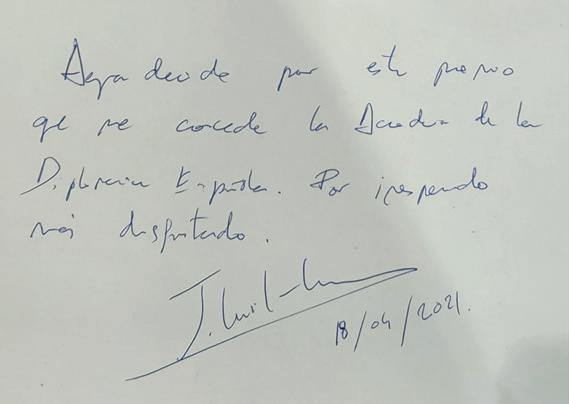 Agradecida por este premio
que me concede la Academia de la
Diplomacia Española. Por inesperado
más disfrutado.
18/04/2021.